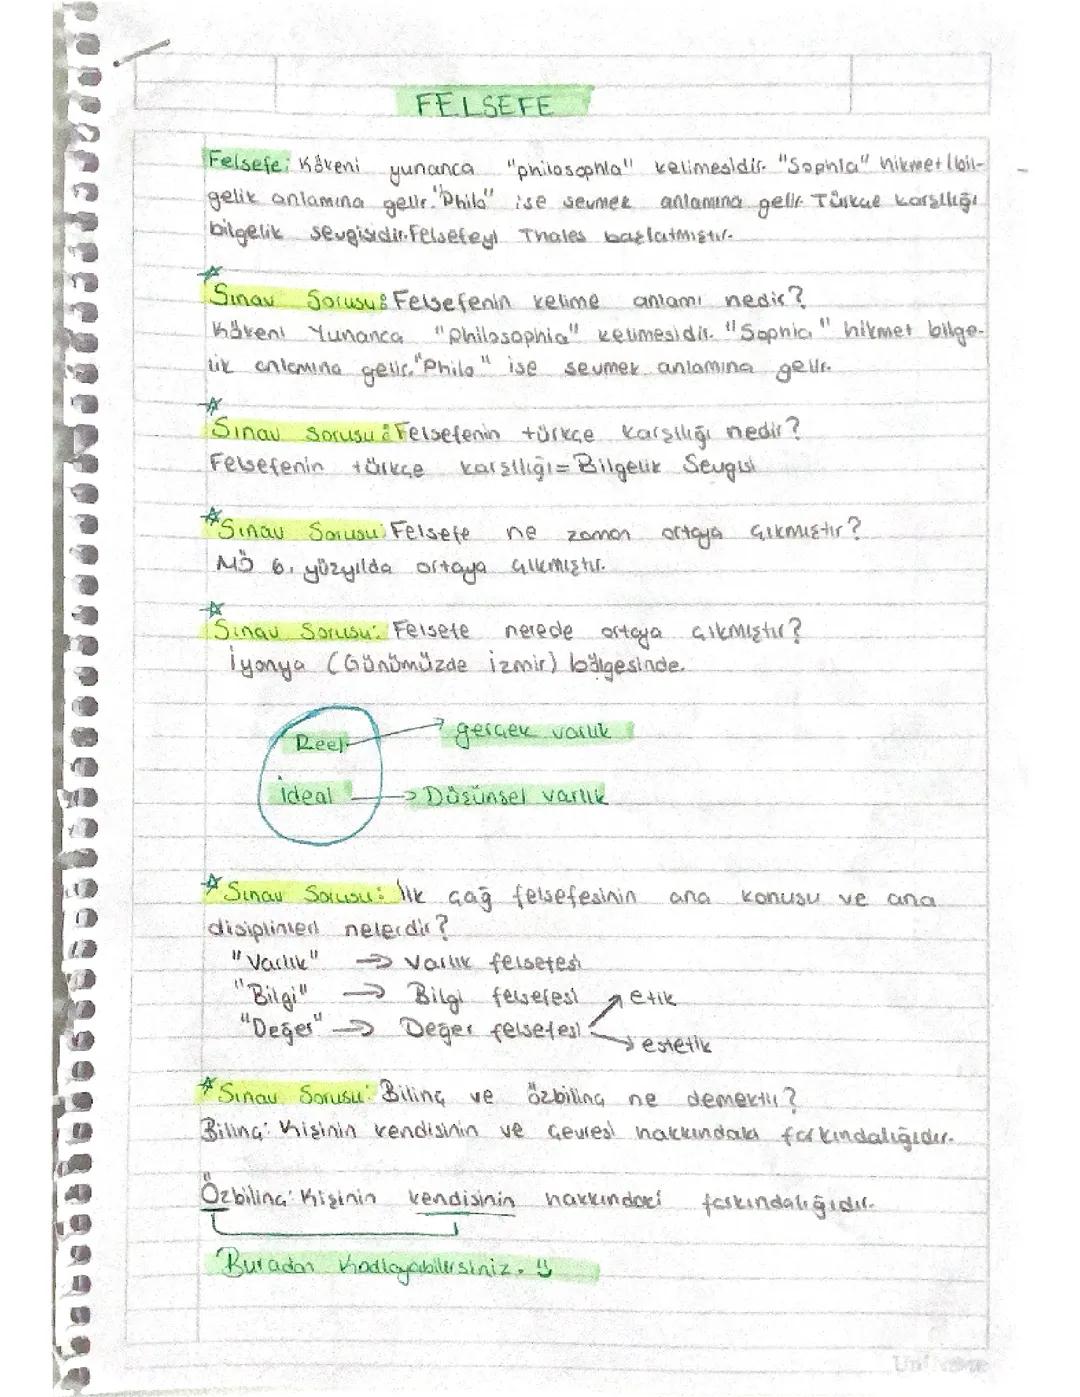 FELSEFE
Felsefe: Kökeni yunanca "philosophia" kelimesidir. "Sophia" hikmet (bil-
gelik anlamına gelir. "Philo" ise sevmek anlamına gelir Türkçe karşılığı
bilgelik sevgisidir. Felsefeyi Thales başlatmıştır.
Sınav Sorusu: Felsefenin kelime anlamı nedir?
Kökeni Yunanca "Philosophia" kelimesidir. "Sophia" hikmet bilge-
lik anlamına gelir. "Philo" ise sevmek anlamına gelir.
Sınav Sorusu: Felsefenin türkçe karşılığı nedir?
Felsefenin türkçe karşılığı = Bilgelik Sevgisi
Sınav Sorusu: Felsefe ne zaman ortaya çıkmıştır?
MÖ 6. yüzyılda ortaya çıkmıştır.
Sınav Sorusu: Felsefe nerede ortaya çıkmıştır?
İyonya (Günümüzde izmir) bölgesinde.
Reel → gerçek varlık
İdeal → Düşünsel varlık
Sınav Sorusu: İlk çağ felsefesinin ana konusu ve ana
disiplinleri nelerdir?
"Varlık" → Varlık felsefesi
"Bilgi" → Bilgi felsefesi → etik
"Değer" → Değer felsefesi → estetik
Sınav Sorusu: Bilinç ve özbilinç ne demektir?
Bilinç: Kişinin kendisinin ve çevresi hakkındaki farkındalığıdır.
Özbilinç: Kişinin kendisinin hakkındaki farkındalığıdır.
Buradan Kodlayabilirsiniz. ☺